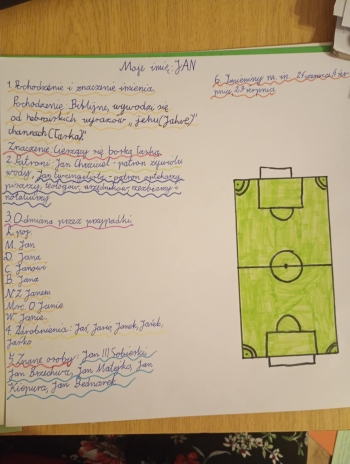 Moje imię: JAN
1. Pochodzenie i znaczenie imienia
Pochodzenie: Biblijne, wywodzi się
od hebrajskich wyrazów „jehu (Jahwe)"
channach (łaska)"
Znaczenie: cieszący się boską łaską
2. Patroni: Jan Chrzciel - patron żywiołu
wody, Jan Ewangelista - patron aptekarzy
pisarzy, teologów, urzędników, rzeźbiarzy i
notariuszy
3. Odmiana przez przypadki
L. poj.
M. Jan
D. Jana
C. Janowi
B. Jana
N. Z Janem
Msc. O Janie
W. Janie
4. Zdrobnienia: Jaś, Janek, Jasiek,
Jaśko
5. Znane osoby: Jan III Sobieski
Jan Brzechwa, Jan Matejko, Jan
Kiepura, Jan Bednarek
6. Imieniny m. in. 24 czerwca,
29 sierpnia